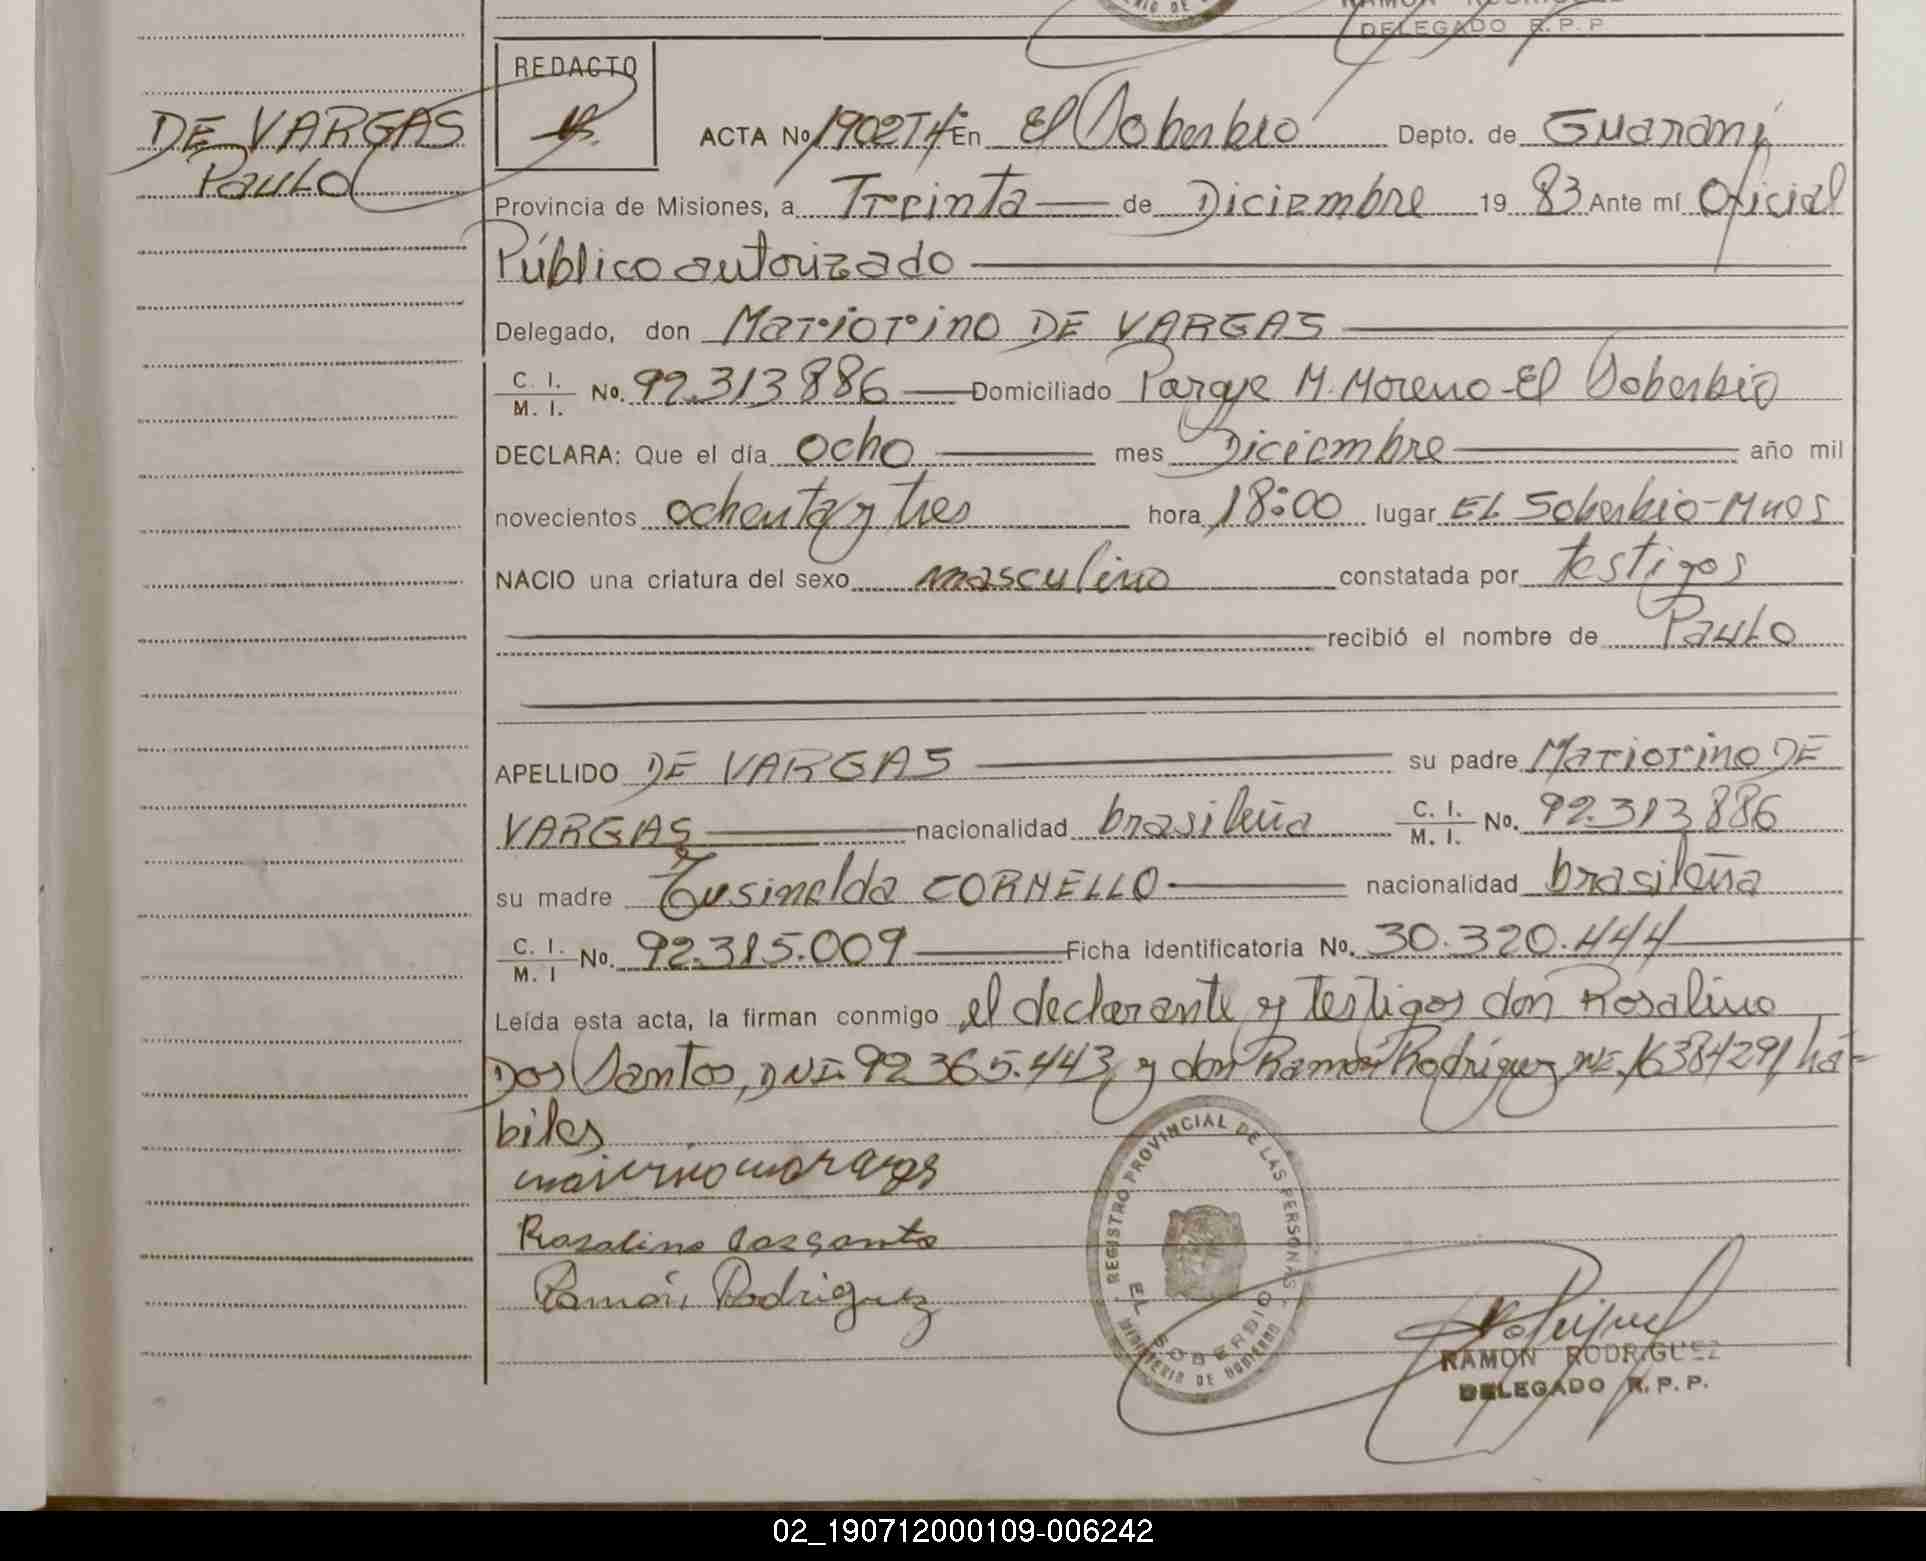 DELEGADO R. P. P
DE VARGAS
Paulo
REDACTO
ACTA No 1902T4º En El Soberbio Depto. de Guaraní
Provincia de Misiones, a Treinta de Diciembre 19 83 Ante mí Oficial
Público autorizado
Delegado, don Mariorino DE VARGAS
C. I. / M. I. No. 92.313886 Domiciliado Parque M. Moreno - El Soberbio
DECLARA: Que el día ocho mes Diciembre año mil
novecientos ochenta y tres hora 18:00 lugar EL Soberbio - Mnes
NACIO una criatura del sexo masculino constatada por testigos
recibió el nombre de Paulo
APELLIDO DE VARGAS su padre Mariorino DE
VARGAS nacionalidad brasileña C. I. / M. I. No. 92.313886
su madre Tusinelda CORNELLO nacionalidad brasileña
C. I. / M. I No. 92.315.009 Ficha identificatoria No. 30.320.444
Leída esta acta, la firman conmigo el declarante y testigos don Rosalino
Dos Santos, DNI. 92.365.443, y don Ramón Rodriguez, 16384291, há-
biles
Rosalino dos santo
Ramón Rodriguez
REGISTRO PROVINCIAL DE LAS PERSONAS
EL SOBERBIO
MINISTERIO DE GOBIERNO
RAMON RODRIGUEZ
DELEGADO R. P. P.
02_190712000109-006242